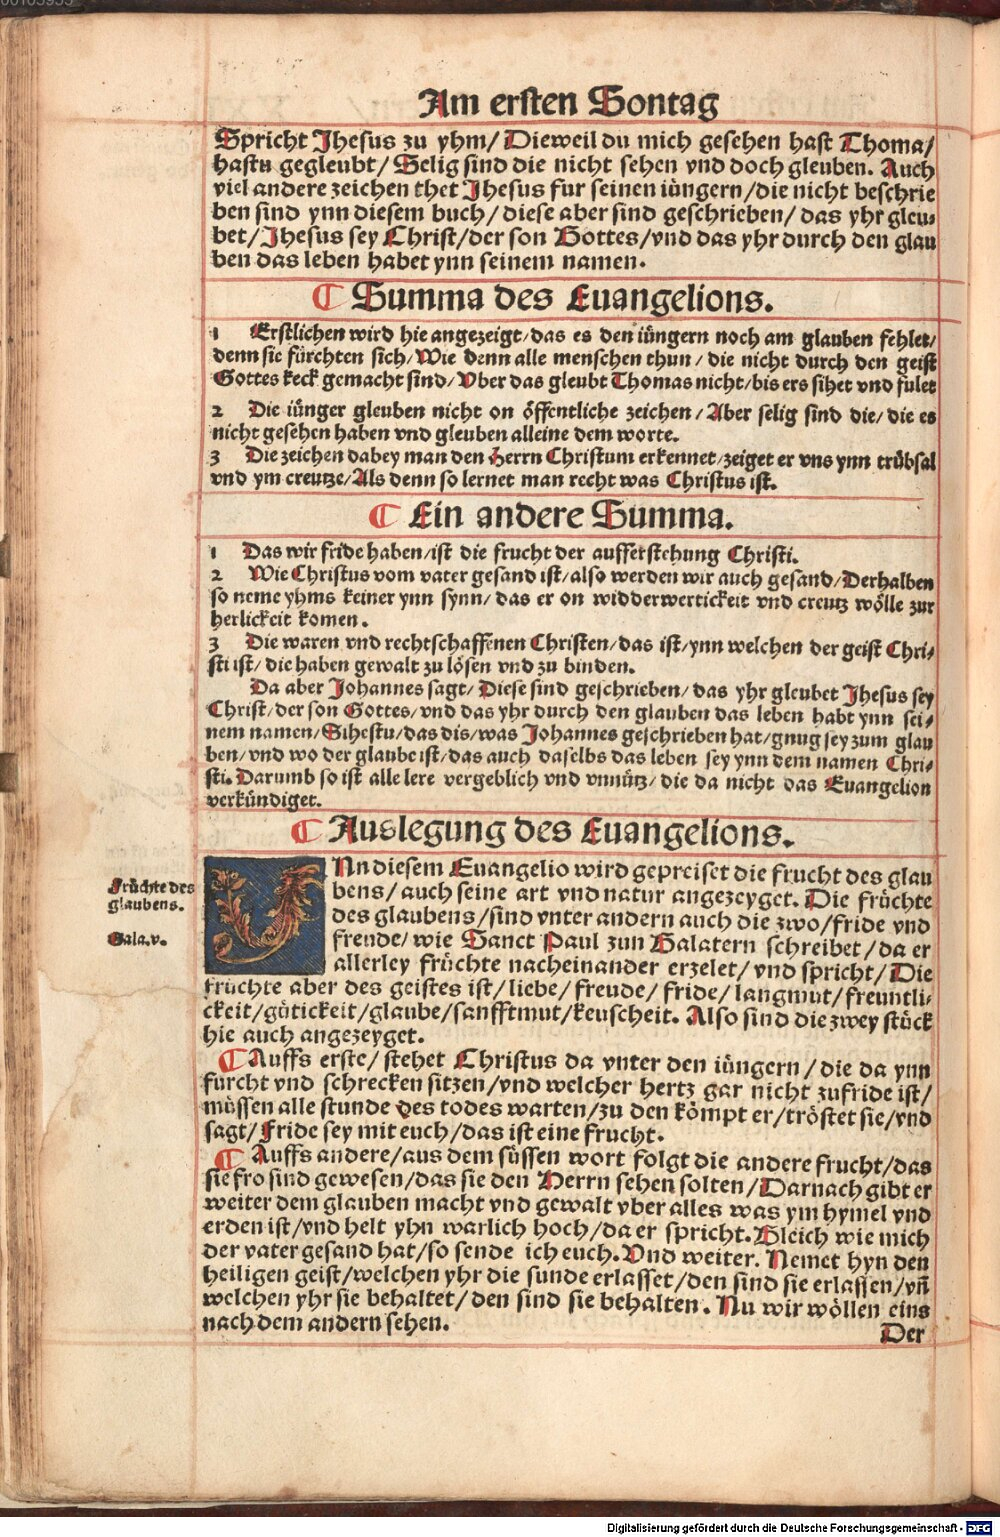 Am ersten Sontag
Spricht Jhesus zu yhm/ Dieweil du mich gesehen hast Thoma/
hastu gegleubt/ Selig sind die nicht sehen vnd doch gleuben. Auch
viel andere zeichen thet Jhesus fur seinen iüngern/die nicht beschrie
ben sind ynn diesem buch/ diese aber sind geschrieben/ das yhr gleu-
bet/ Jhesus sey Christ/der son Gottes/vnd das yhr durch den glau
ben das leben habet ynn seinem namen.
¶ Summa des Euangelions.
1 Erstlichen wird hie angezeigt/das es den iüngern noch am glauben fehlet/
denn sie fürchten sich/ Wie denn alle menschen thun/ die nicht durch den geist
Gottes keck gemacht sind/ Vber das gleubt Thomas nicht/bis ers sihet vnd fulet
2 Die iünger gleuben nicht on öffentliche zeichen/ Aber selig sind die/ die es
nicht gesehen haben vnd gleuben alleine dem worte.
3 Die zeichen dabey man den Herrn Christum erkennet/zeiget er vns ynn trübsal
vnd ym creutze/Als denn so lernet man recht was Christus ist.
¶ Ein andere Summa.
1 Das wir fride haben/ist die frucht der aufferstehung Christi.
2 Wie Christus vom vater gesand ist/also werden wir auch gesand/Derhalben
so neme yhms keiner ynn synn/ das er on widderwertickeit vnd creutz wölle zur
herlickeit komen.
3 Die waren vnd rechtschaffenen Christen/das ist/ynn welchen der geist Chri-
sti ist/ die haben gewalt zu lösen vnd zu binden.
Da aber Johannes sagt/ Diese sind geschrieben/ das yhr gleubet Jhesus sey
Christ/der son Gottes/vnd das yhr durch den glauben das leben habt ynn sei-
nem namen/Sihestu/das dis/was Johannes geschrieben hat/gnug sey zum glau
ben/vnd wo der glaube ist/das auch daselbs das leben sey ynn dem namen Chri-
sti. Darumb so ist alle lere vergeblich vnd vnnütz/ die da nicht das Euangelion
verkündiget.
¶ Auslegung des Euangelions.
Früchte des
glaubens.
Gala.v.
JNn diesem Euangelio wird gepreiset die frucht des glau
bens/ auch seine art vnd natur angezeyget. Die früchte
des glaubens/sind vnter andern auch die zwo/fride vnd
freude/ wie Sanct Paul zun Galatern schreibet/da er
allerley früchte nacheinander erzelet/ vnd spricht/ Die
fruchte aber des geistes ist/liebe/ freude/ fride/ langmut/freuntli-
ckeit/gütickeit/glaube/sanfftmut/keuscheit. Also sind die zwey stück
hie auch angezeyget.
¶ Auffs erste/ stehet Christus da vnter den iüngern/ die da ynn
furcht vnd schrecken sitzen/vnd welcher hertz gar nicht zufride ist/
müssen alle stunde des todes warten/zu den kömpt er/tröstet sie/vnd
sagt/ Fride sey mit euch/das ist eine frucht.
¶ Auffs andere/aus dem süssen wort folgt die andere frucht/das
sie fro sind gewesen/das sie den Herrn sehen solten/Darnach gibt er
weiter dem glauben macht vnd gewalt vber alles was ym hymel vnd
erden ist/vnd helt yhn warlich hoch/da er spricht. Gleich wie mich
der vater gesand hat/so sende ich euch. Vnd weiter. Nemet hyn den
heiligen geist/welchen yhr die sunde erlasset/den sind sie erlassen/vñ
welchen yhr sie behaltet/den sind sie behalten. Nu wir wöllen eins
nach dem andern sehen.
Der
Digitalisierung gefördert durch die Deutsche Forschungsgemeinschaft - DFG